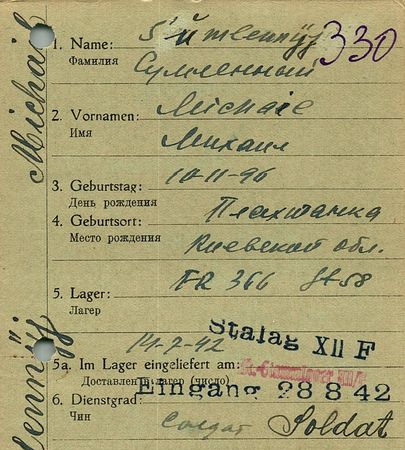 330
1. Name:
Фамилия
Сумленный
2. Vornamen: Michail
Имя Михаил
3. Geburtstag: 10-11-96
День рождения
4. Geburtsort:
Место рождения Киевской обл.
FR 366
5. Lager:
Лагер
14-7-42
Stalag XII F
5a. Im Lager eingeliefert am:
Доставлен в лагер (число)
Eingang 28 8 42
6. Dienstgrad: Soldat
Чин солдат
Michail